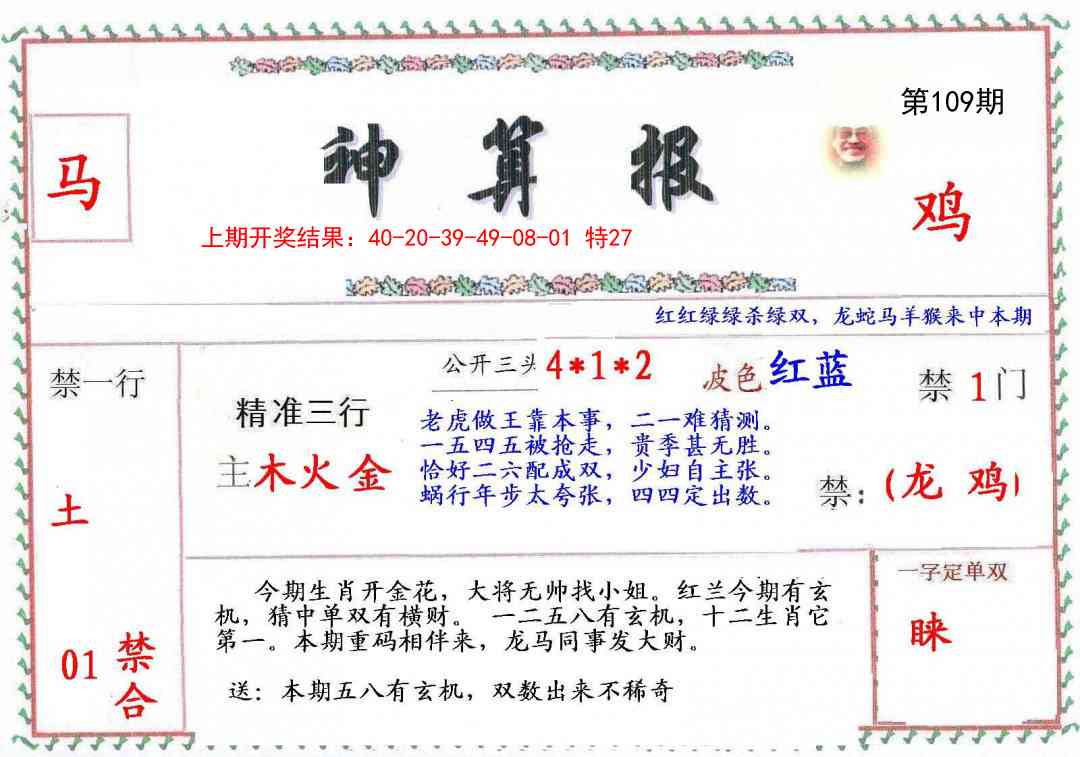 第109期
马
神算报
鸡
上期开奖结果：40-20-39-49-08-01 特27
红红绿绿杀绿双，龙蛇马羊猴来中本期
禁一行
土
01 禁合
公开三头 4*1*2
波色 红蓝
禁 1 门
精准三行
主木火金
老虎做王靠本事，二一难猜测。
一五四五被抢走，贵季甚无胜。
恰好二六配成双，少妇自主张。
蜗行年步太夸张，四四定出数。
禁：(龙 鸡)
今期生肖开金花，大将无帅找小姐。红兰今期有玄
机，猜中单双有横财。 一二五八有玄机，十二生肖它
第一。本期重码相伴来，龙马同事发大财。
送：本期五八有玄机，双数出来不稀奇
一字定单双
睐